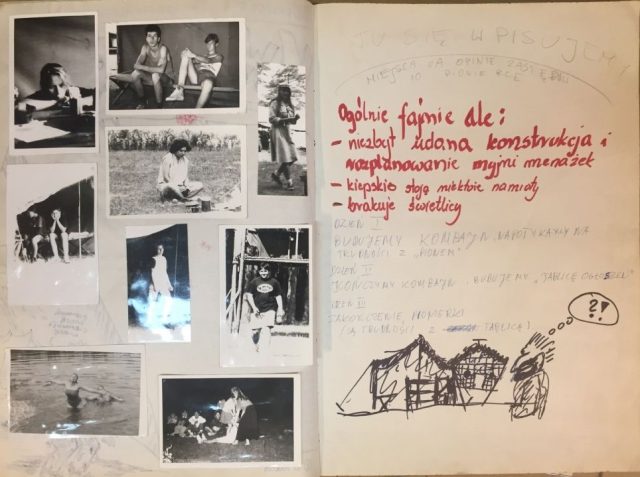 TU SIĘ WPISUJEMY
MIEJSCE NA OPINIE
Ogólnie fajnie ale:
- niezbyt udana konstrukcja i
rozplanowanie myjni menażek
- kiepsko stoją niektóre namioty
- brakuje świetlicy
DZIEŃ I
BUDUJEMY KOMBAJN, NAPOTYKAMY NA
TRUDNOŚCI Z „PIONEM”
DZIEŃ II
KOŃCZYMY KOMBAJN, BUDUJEMY „TABLICĘ OGŁOSZEŃ”
DZIEŃ III
ZAKOŃCZENIE PIONIERKI
(SĄ TRUDNOŚCI Z TABLICĄ)
?!